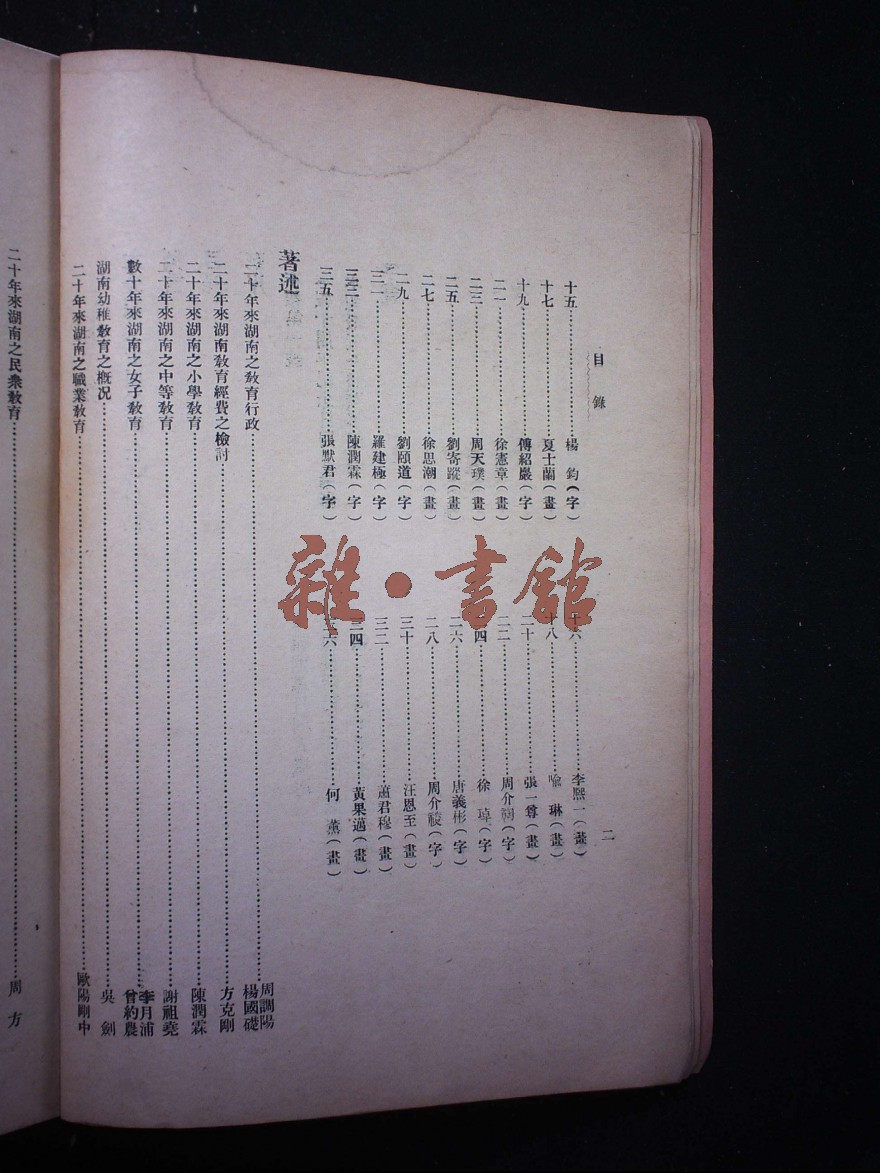 目錄
二
十五 楊鈞（字）
十六 李熙一（畫）
十七 夏士蘭（畫）
十八 喩琳（畫）
十九 傅紹巖（字）
二十 張一尊（畫）
二一 徐憲章（畫）
二二 周介裪（字）
二三 周天璞（畫）
二四 徐（字）
二五 劉寄蹤（畫）
二六 唐義彬（字）
二七 徐思潮（畫）
二八 周介祾（字）
二九 劉頤道（字）
三十 汪恩至（畫）
三一 羅建極（字）
三二 蕭君穆（畫）
三三 陳潤霖（字）
三四 黃果邁（畫）
三五 張默君（字）
三六 何薰（畫）
著述
二十年來湖南之教育行政 周調陽 楊國礎
二十年來湖南教育經費之檢討 方克剛
二十年來湖南之小學教育 陳潤霖
二十年來湖南之中等教育 謝祖堯
數十年來湖南之女子教育 李月浦 曾約農
湖南幼稚教育之概況 吳劍
二十年來湖南之職業教育 歐陽剛中
二十年來湖南之民衆教育 周方
雜·書館